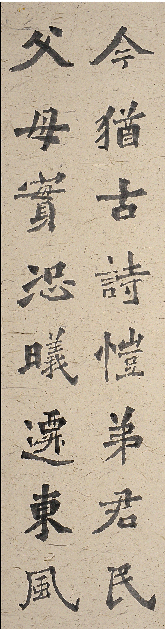 今猶古詩愷弟君民
父母實恐曦遷東風